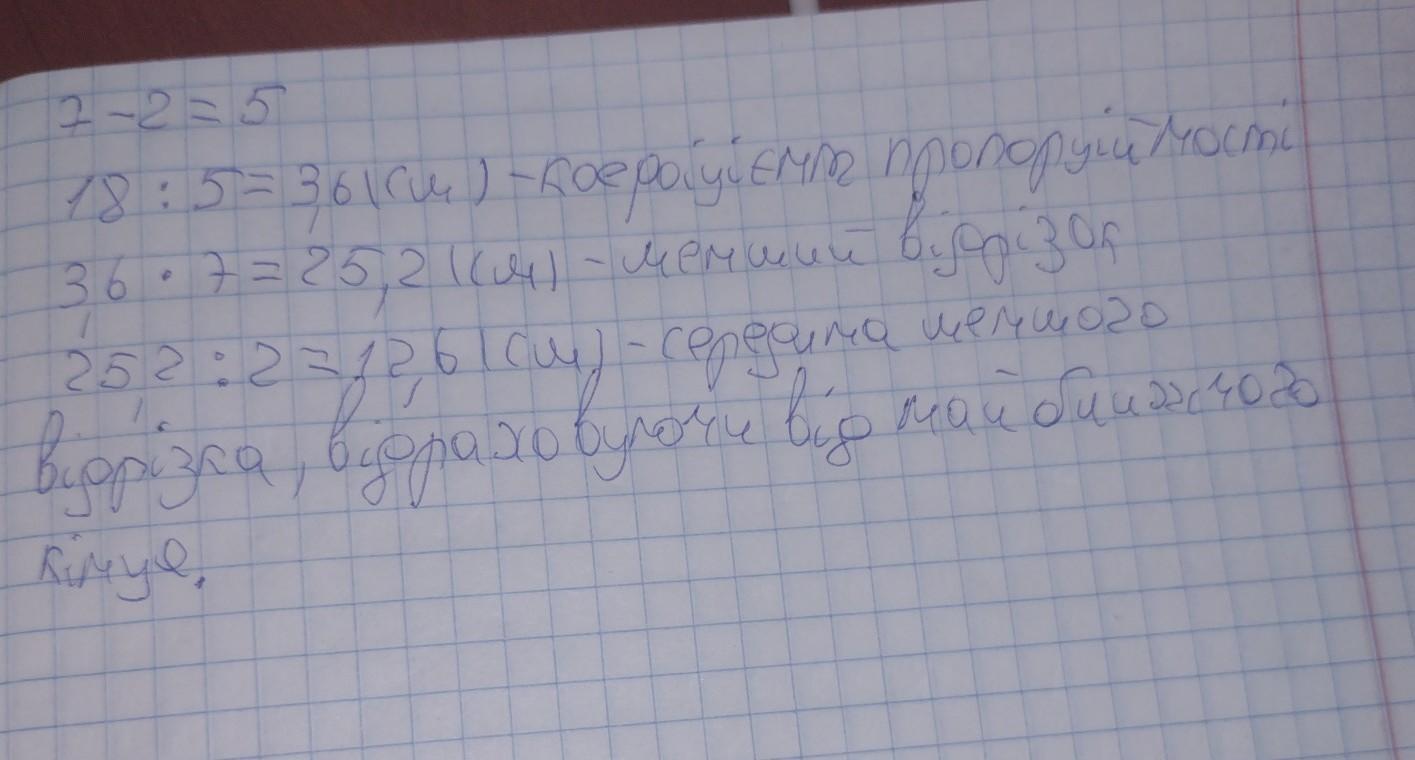 7 - 2 = 5
18 : 5 = 3,6 (см) - коефіцієнт пропорційності
3,6 · 7 = 25,2 (см) - менший відрізок
25,2 : 2 = 12,6 (см) - середина меншого
відрізка, відраховуючи від найближчого
кінця.